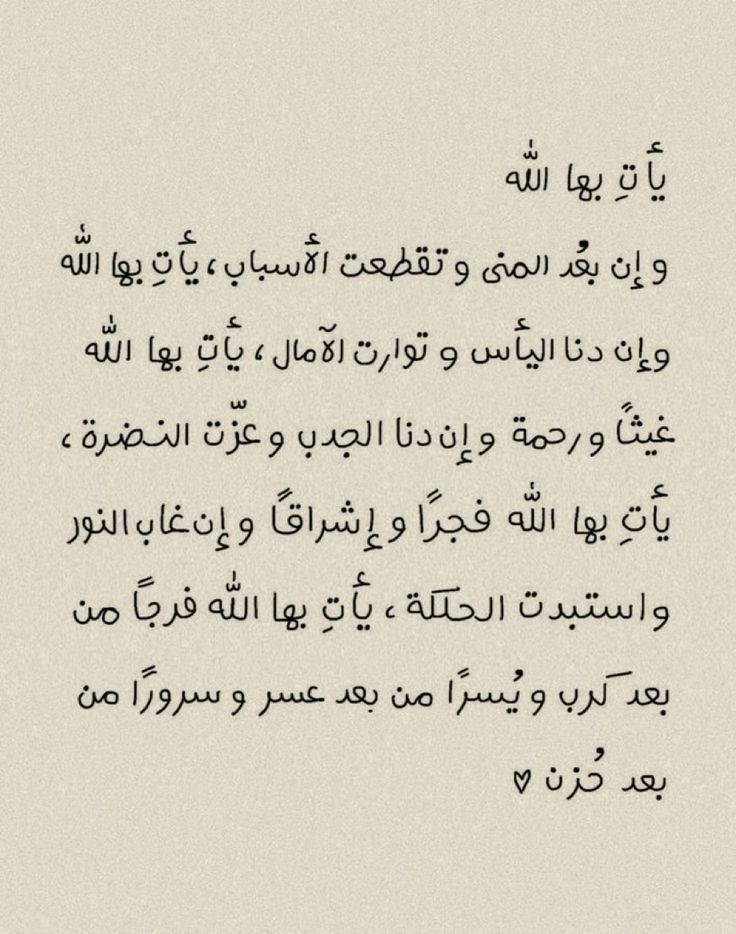 يأتِ بها اللّٰه
وإن بعُد المنى وتقطعت الأسباب، يأتِ بها اللّٰه
وإن دنا اليأس وتوارت الآمال، يأتِ بها اللّٰه
غيثاً ورحمة وإن دنا الجدب وعزّت النضرة،
يأتِ بها اللّٰه فجرًا وإشراقًا وإن غاب النور
واستبدت الحلكة، يأتِ بها اللّٰه فرجاً من
بعد كرب ويُسرًا من بعد عسر وسرورًا من
بعد حُزن ♡